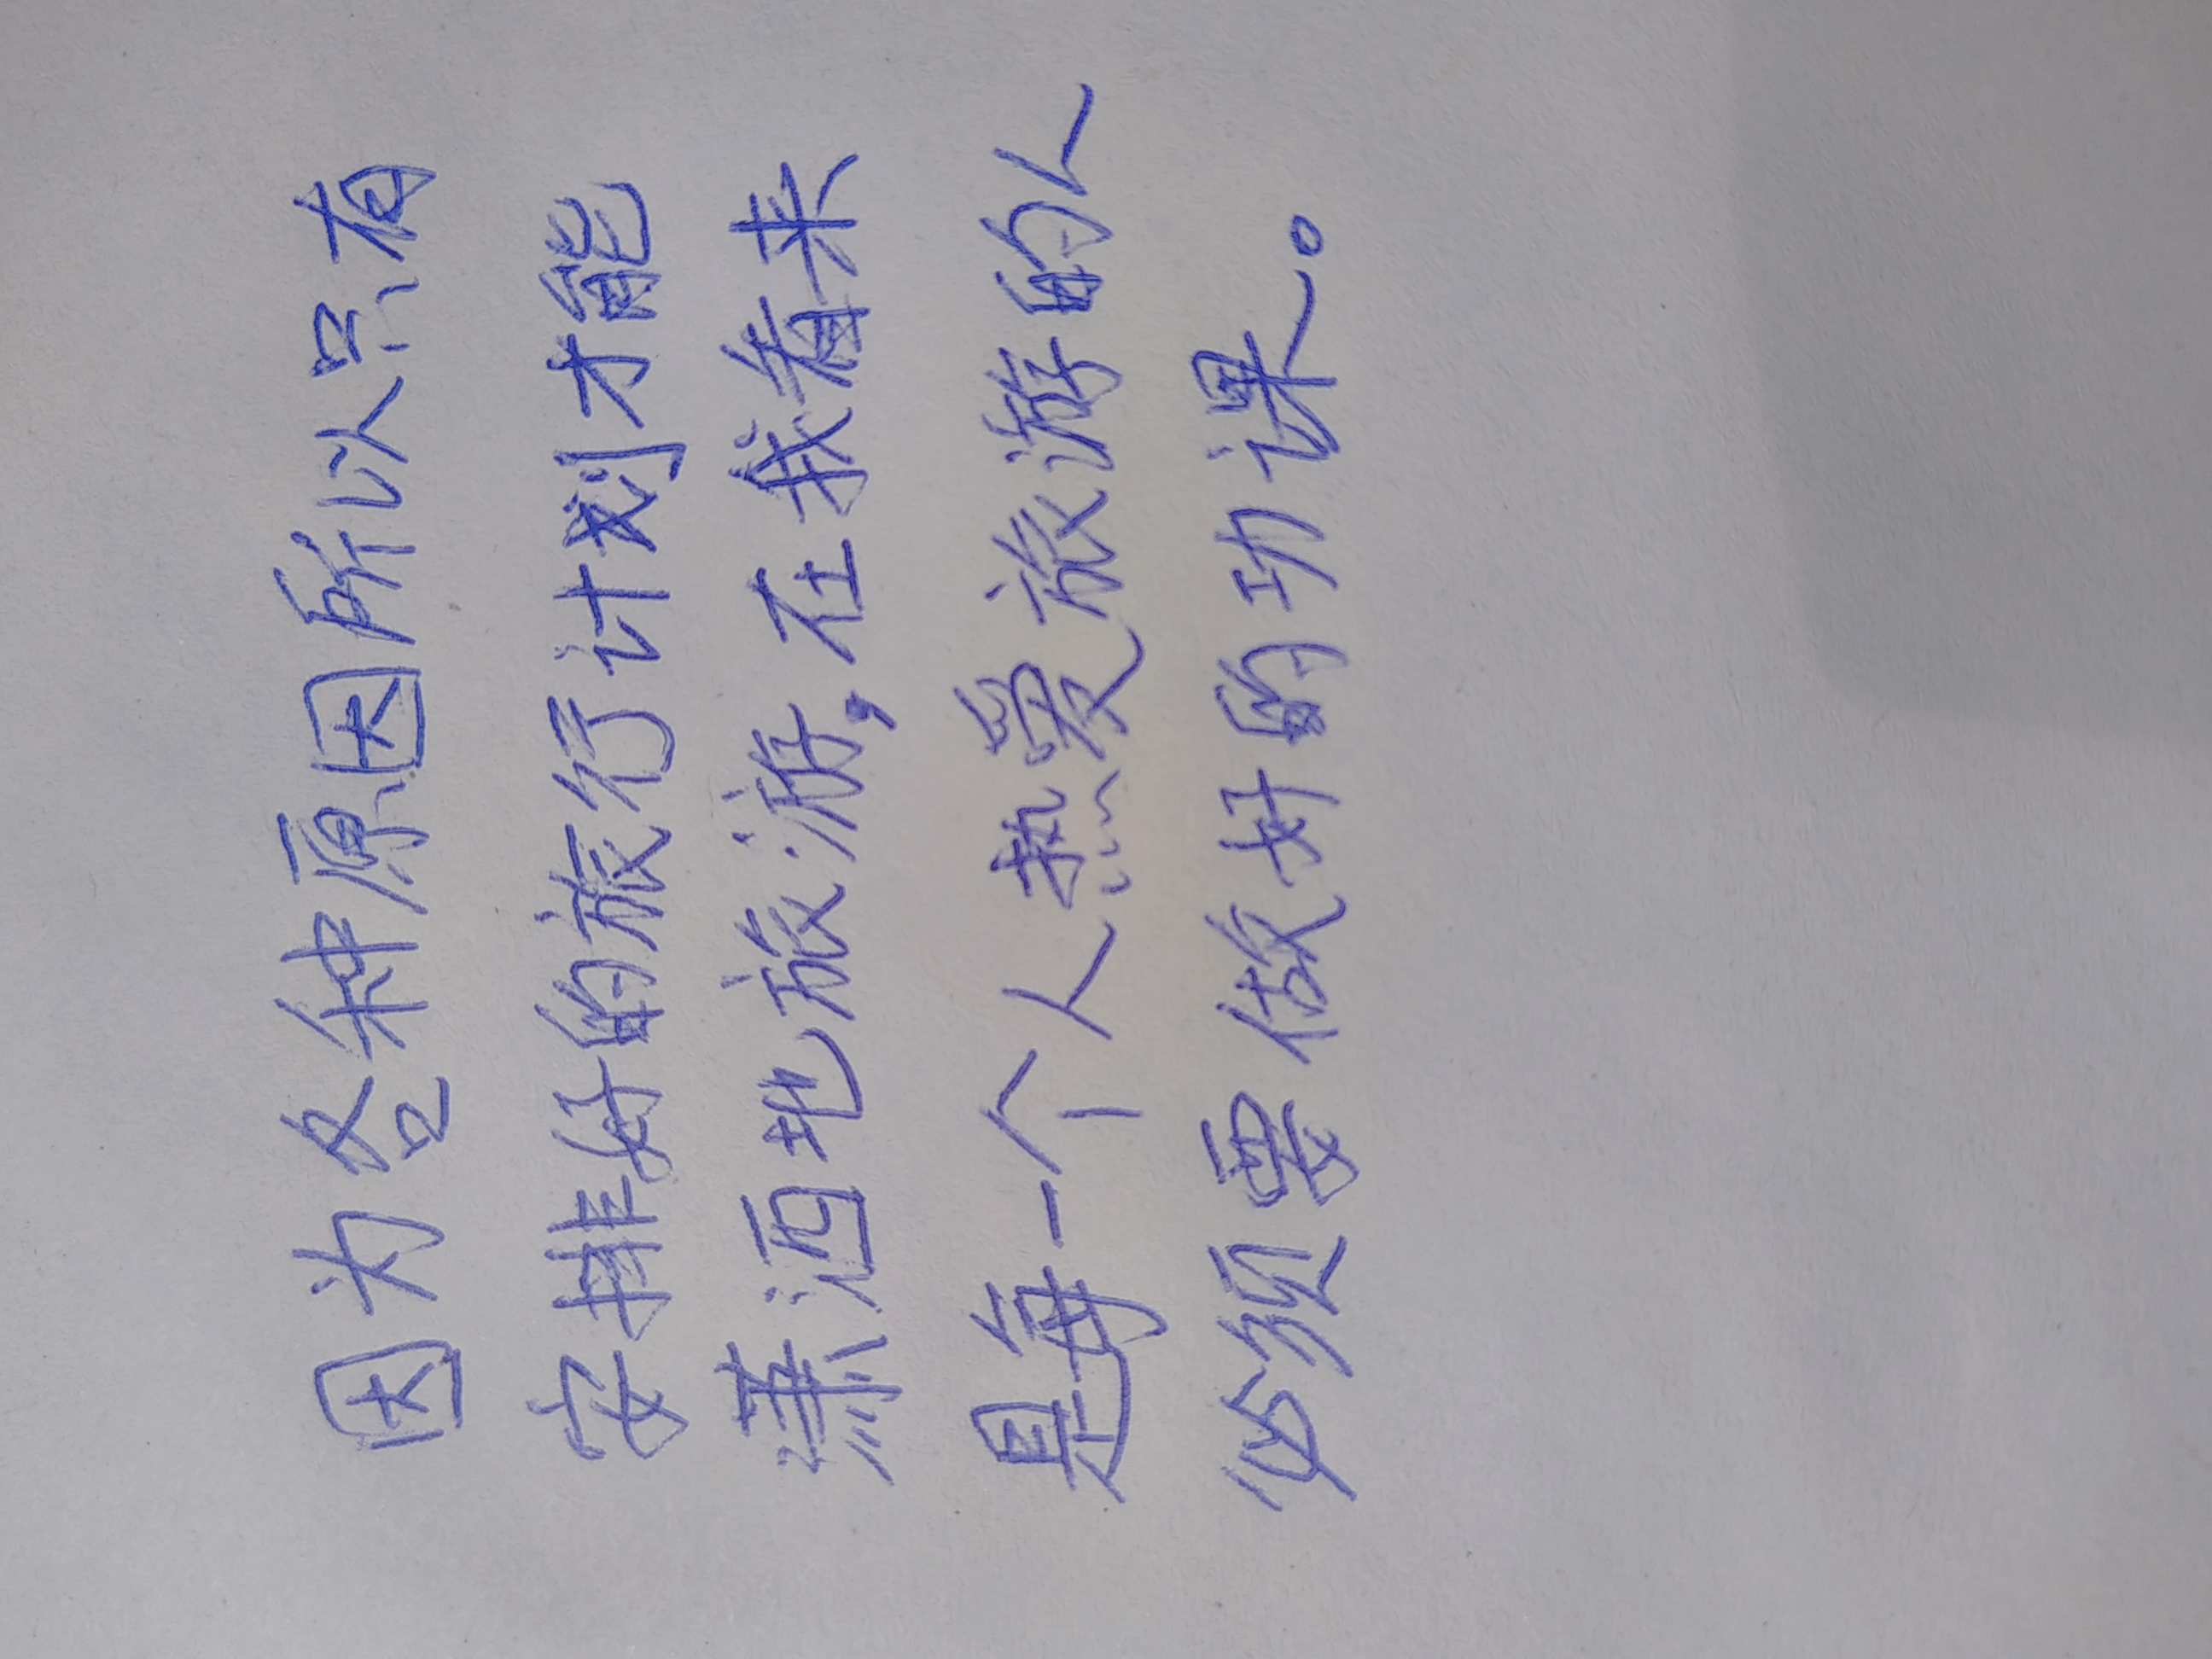 因为各种原因所以只有
安排好的旅行计划才能
潇洒地旅游,在我看来
是每一个人热爱旅游的人
必须要做好的功课。